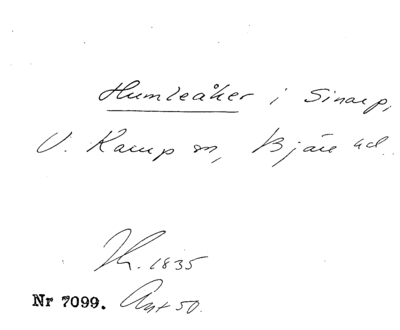 Humleåker i Sinarp,
V. Karup sn, Bjäre hd.
Th. 1835
Nr 7099. Ant 50.